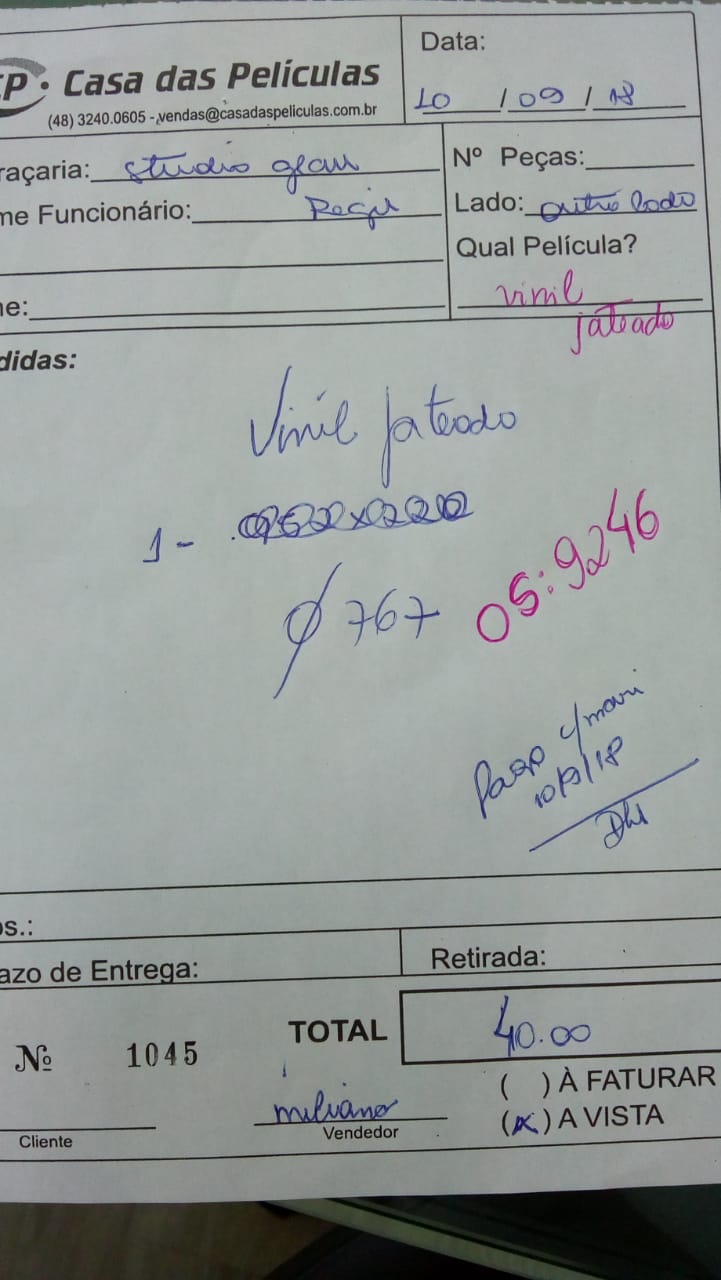 CP · Casa das Películas
(48) 3240.0605 - vendas@casadaspeliculas.com.br
Data:
10 / 09 / 18
raçaria: studio glass
Nº Peças:
me Funcionário:
Lado: outro lado
Qual Película?
vinil
jateado
e:
didas:
Vinil jateado
1 -
Ø 767
OS: 9246
Pago c/ mari
10/9/18
os.:
azo de Entrega:
Retirada:
Nº 1045
TOTAL
40.00
( ) À FATURAR
(x) A VISTA
Cliente
Vendedor